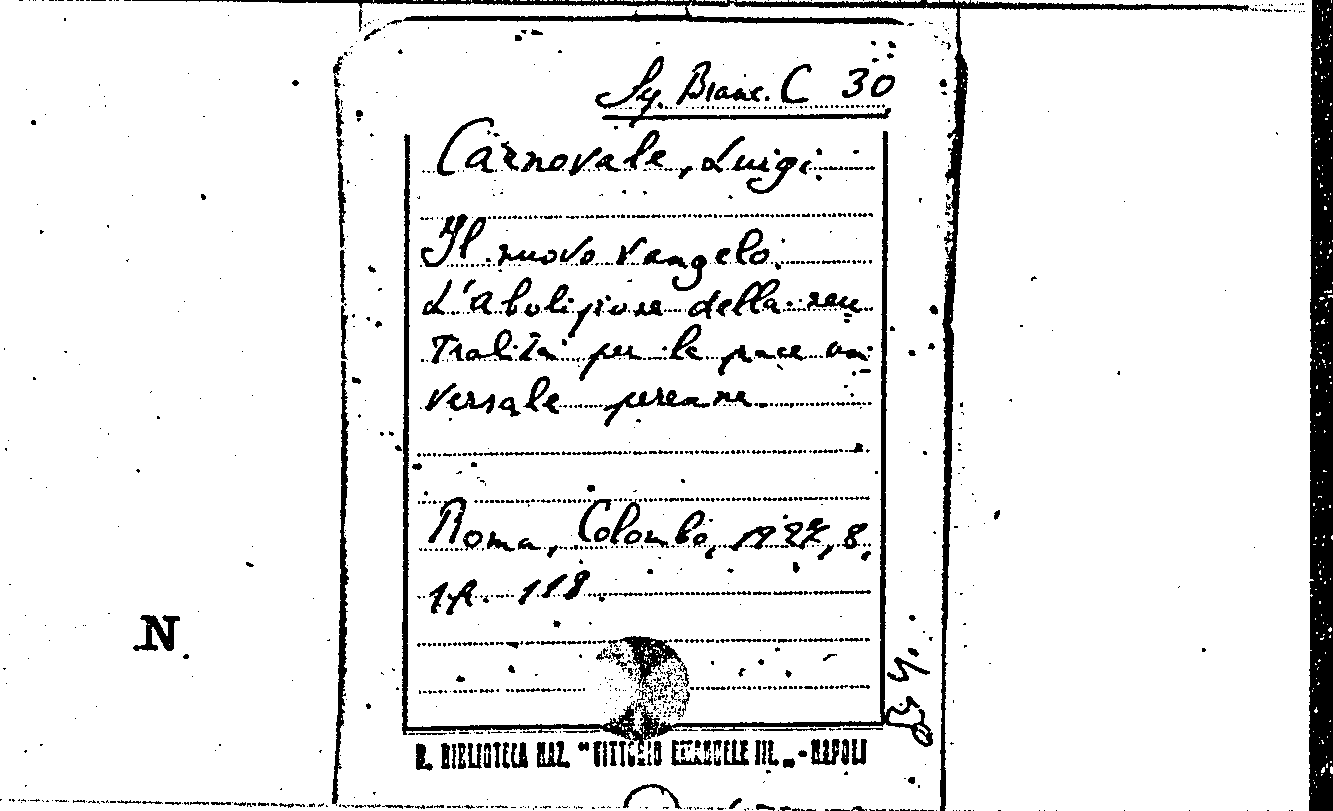 Sy. Branc. C 30
Carnovale, Luigi.
Il nuovo vangelo.
L'abolizione della neu
tralità per la pace uni
versale perenne.
Roma, Colombo, 1927, 8,
pp. 118.
N
R. BIBLIOTECA NAZ. "VITTORIO EMANUELE III." - NAPOLI